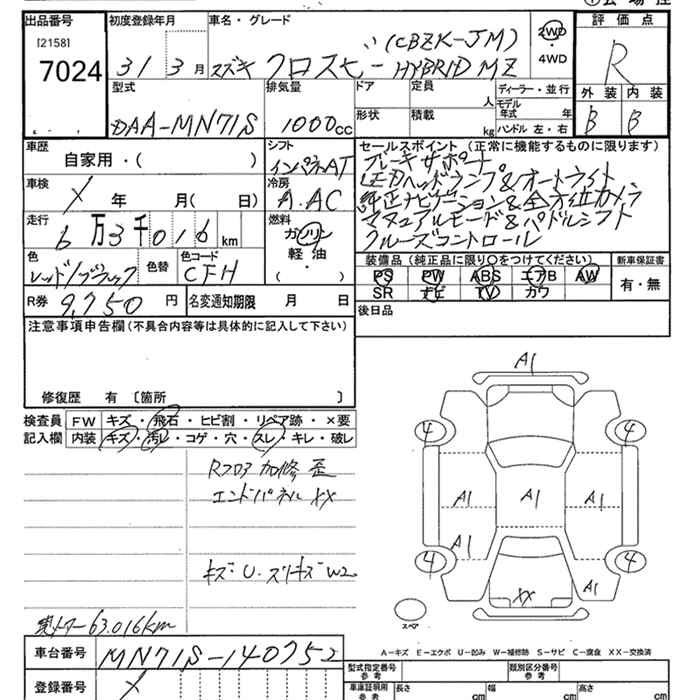 ① 会場控
出品番号
[2158]
7024
初度登録年月
31 3 月
車名・グレード
(CBZK-JM)
スズキ クロスビー HYBRID MZ
2WD
・
4WD
評価点
R
外装 内装
B B
型式
DAA-MN71S
排気量
1000cc
ドア
定員
人
形状
積載
kg
ディーラー・並行
モデル年式 年
ハンドル 左・右
車歴
自家用・( )
シフト
インパネAT
セールスポイント (正常に機能するものに限る)
ブレーキサポート
LEDヘッドランプ&オートライト
純正ナビゲーション&全方位カメラ
マニュアルモード&パドルシフト
クルーズコントロール
車検
X 年 月( 日)
冷房
A.AC
走行
6万3千016km
燃料
ガソリン
軽・油
( )
色
レッド/ブラック
色替
色コード
CFH
装備品 (純正品に限り○をつけてください)
PS PW ABS エアB AW
SR ナビ TV カワ
新車保証書
有・無
R券 9,750 円
名変通知期限 月 日
後日品
注意事項申告欄(不具合内容等は具体的に記入して下さい)
修復歴 有 〔箇所 〕
検査員記入欄
FW キズ・飛石・ヒビ割・リペア跡・×要
内装 キズ・汚レ・コゲ・穴・スレ・キレ・破レ
Rフロア 加修 歪
エンドパネル XX
キズ・U・スリキズ W2
63,016km
A1
4 4
A1 A1 A1
A1
4 4
A1
XX
スペア
A-キズ E-エクボ U-凹み W-補修跡 S-サビ C-腐食 XX-交換済
車台番号 MN71S-140752
登録番号 X
型式指定番号 参考
類別区分番号 参考
車庫証明用 参考
長さ cm
幅 cm
高さ cm